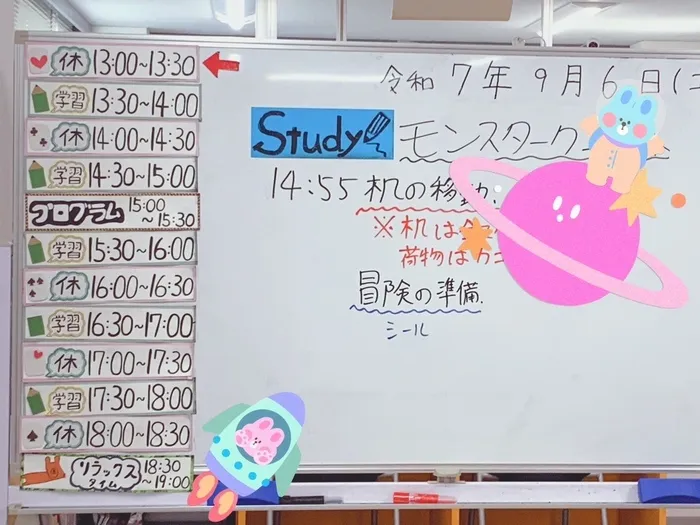 休 13:00~13:30
学習 13:30~14:00
休 14:00~14:30
学習 14:30~15:00
プログラム 15:00~15:30
学習 15:30~16:00
休 16:00~16:30
学習 16:30~17:00
休 17:00~17:30
学習 17:30~18:00
休 18:00~18:30
リラックスタイム 18:30~19:00
令和7年9月6日(
Study モンスターク
14:55 机の移動.
※机は
荷物はカゴ
冒険の準備.
シール